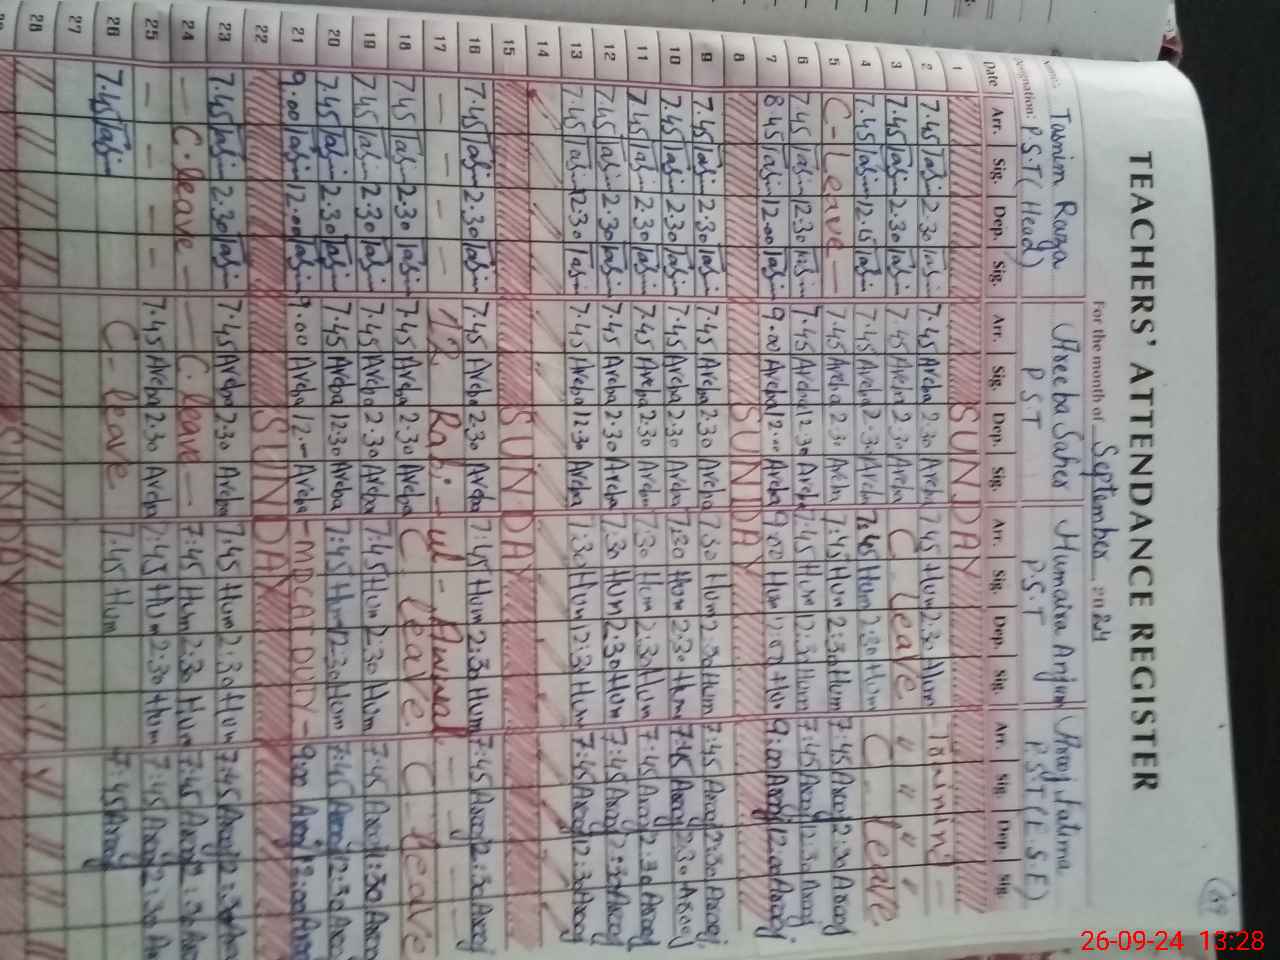 TEACHERS' ATTENDANCE REGISTER
For the month of September 2024
Tasnim Raza Areeba Saher Humaira Anjum Arooj Fatima
Designation: P.S.T (Head) P.S.T P.S.T PST (E.S.E)
Date Arr. Sig. Dep. Sig. Arr. Sig. Dep. Sig. Arr. Sig. Dep. Sig. Arr. Sig. Dep. Sig.
1 SUNDAY
2 7.45 2.30 7.45 Areba 2.30 Areba 7.45 Hum 2.30 Hum
3 7.45 2.30 7.45 Areba 2.30 Areba C leave " " " "
4 7.45 12.15 7.45 Areba 2.30 Areba 7.45 Hum 2:30 Hum C leave
5 C-Leave 7.45 Areba 2.30 Areba 7:45 Hum 2:30 Hum 7:45 Arooj 2:30 Arooj
6 7.45 12.30 7.45 Areba 12.30 Areba 7:45 Hum 12:30 Hum 7:45 Arooj 12:30 Arooj
7 8.45 12.00 9.00 Areba 12.00 Areba 9:00 Hum 12:00 Hum 9.00 Arooj 12.00 Arooj
8 SUNDAY
9 7.45 2.30 7.45 Areba 2.30 Areba 7:30 Hum 2:30 Hum 7.45 Arooj 2:30 Arooj
10 7.45 2.30 7.45 Areba 2.30 Areba 7:30 Hum 2:30 Hum 7:45 Arooj 2:30 Arooj
11 7.45 2.30 7.45 Areba 2.30 Areba 7:30 Hum 2:30 Hum 7:45 Arooj 2:30 Arooj
12 7.45 2.30 7.45 Areba 2.30 Areba 7:30 Hum 2:30 Hum 7:45 Arooj 2:30 Arooj
13 7.45 7.45 Areba 12.30 Areba 7:30 Hum 12:30 Hum 7:45 Arooj 12:30 Arooj
14
15 SUNDAY
16 7.45 2.30 7.45 Areba 2.30 Areba 7:45 Hum 2:30 Hum 7:45 Arooj 2:30 Arooj
17 - - - - 12 Rabi-ul-Awwal - - -
18 7.45 2.30 7.45 Areba 2.30 Areba C leave C-leave
19 7.45 2.30 7.45 Areba 2.30 Areba 7:45 Hum 2:30 Hum 7:45 Arooj Arooj
20 7.45 2.30 7.45 Areba 12.30 Areba 7:45 Hum 12:30 Hum 7:45 Arooj 12:30 Arooj
21 9.00 12.00 9.00 Areba 12.- Areba -MDCAT DUTY- 9.00 Arooj 12:00 Arooj
22 SUNDAY
23 7.45 2.30 7.45 Areba 2.30 Areba 7:45 Hum 2:30 Hum 7:45 Arooj 2:30 Arooj
24 - C.leave - - C. leave - 7:45 Hum 2:30 Hum 7:45 Arooj 2:30 Arooj
25 - - - - 7.45 Areba 2.30 Areba 7:45 Hum 2:30 Hum 7:45 Arooj 2:30
26 7.45 C-leave 7:45 Hum 7:45 Arooj
27
28
SUNDAY
26-09-24 13:28